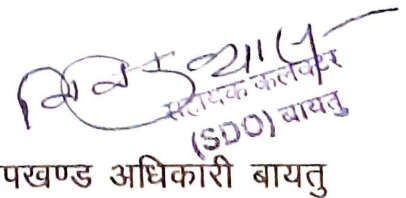 सहायक कलेक्टर
(SDO) बायतु
पखण्ड अधिकारी बायतु